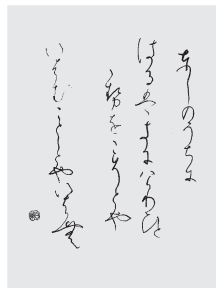 としのうちに
はるはきにけりひと
とせをこぞとや
いはむことしとやいはむ